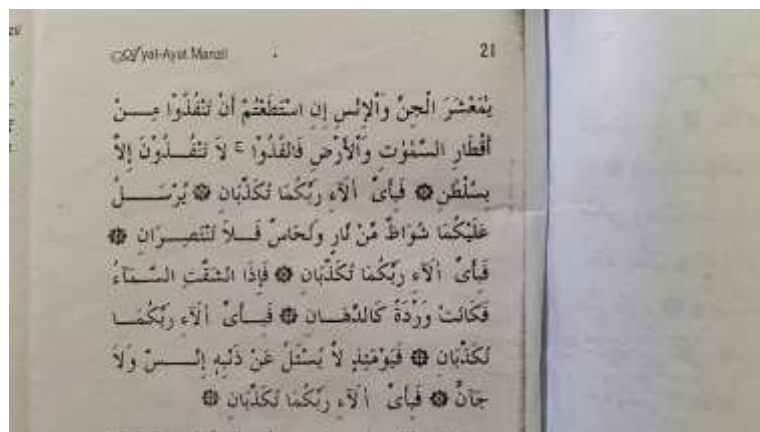 Ayat-Ayat Manzil 21
يٰمَعْشَرَ الْجِنِّ وَالْإِنْسِ إِنِ اسْتَطَعْتُمْ أَنْ تَنْفُذُوْا مِـــنْ
أَقْطَارِ السَّمٰوٰتِ وَالْأَرْضِ فَانْفُذُوْا ۚ لَا تَنْفُــذُوْنَ إِلَّا
بِسُلْطٰنٍ ۞ فَبِأَىِّ اٰلَآءِ رَبِّكُمَا تُكَذِّبَانِ ۞ يُرْسَـــلُ
عَلَيْكُمَا شُوَاظٌ مِّنْ نَّارٍ وَنُحَاسٌ فَــلَا تَنْتَصِــرَانِ ۞
فَبِأَىِّ اٰلَآءِ رَبِّكُمَا تُكَذِّبَانِ ۞ فَإِذَا انْشَقَّتِ السَّـمَآءُ
فَكَانَتْ وَرْدَةً كَالدِّهَــانِ ۞ فَبِــأَىِّ اٰلَآءِ رَبِّكُمَــا
تُكَذِّبَانِ ۞ فَيَوْمَئِذٍ لَّا يُسْئَلُ عَنْ ذَنْبِهٖ إِنْـــسٌ وَلَا
جَآنٌّ ۞ فَبِأَىِّ اٰلَآءِ رَبِّكُمَا تُكَذِّبَانِ ۞